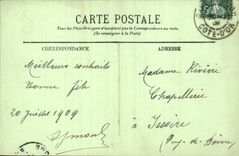 CARTE POSTALE
Tous les Pays Étrangers n'acceptent pas la Correspondance au recto.
(Se renseigner à la Poste).
CORRESPONDANCE
ADRESSE
CÔTE-D'OR
Meilleurs souhaits
Bonne fête
20 Juillet 1909
Madame Rivière
Chapellerie
à Issoire
Puy-de-Dôme